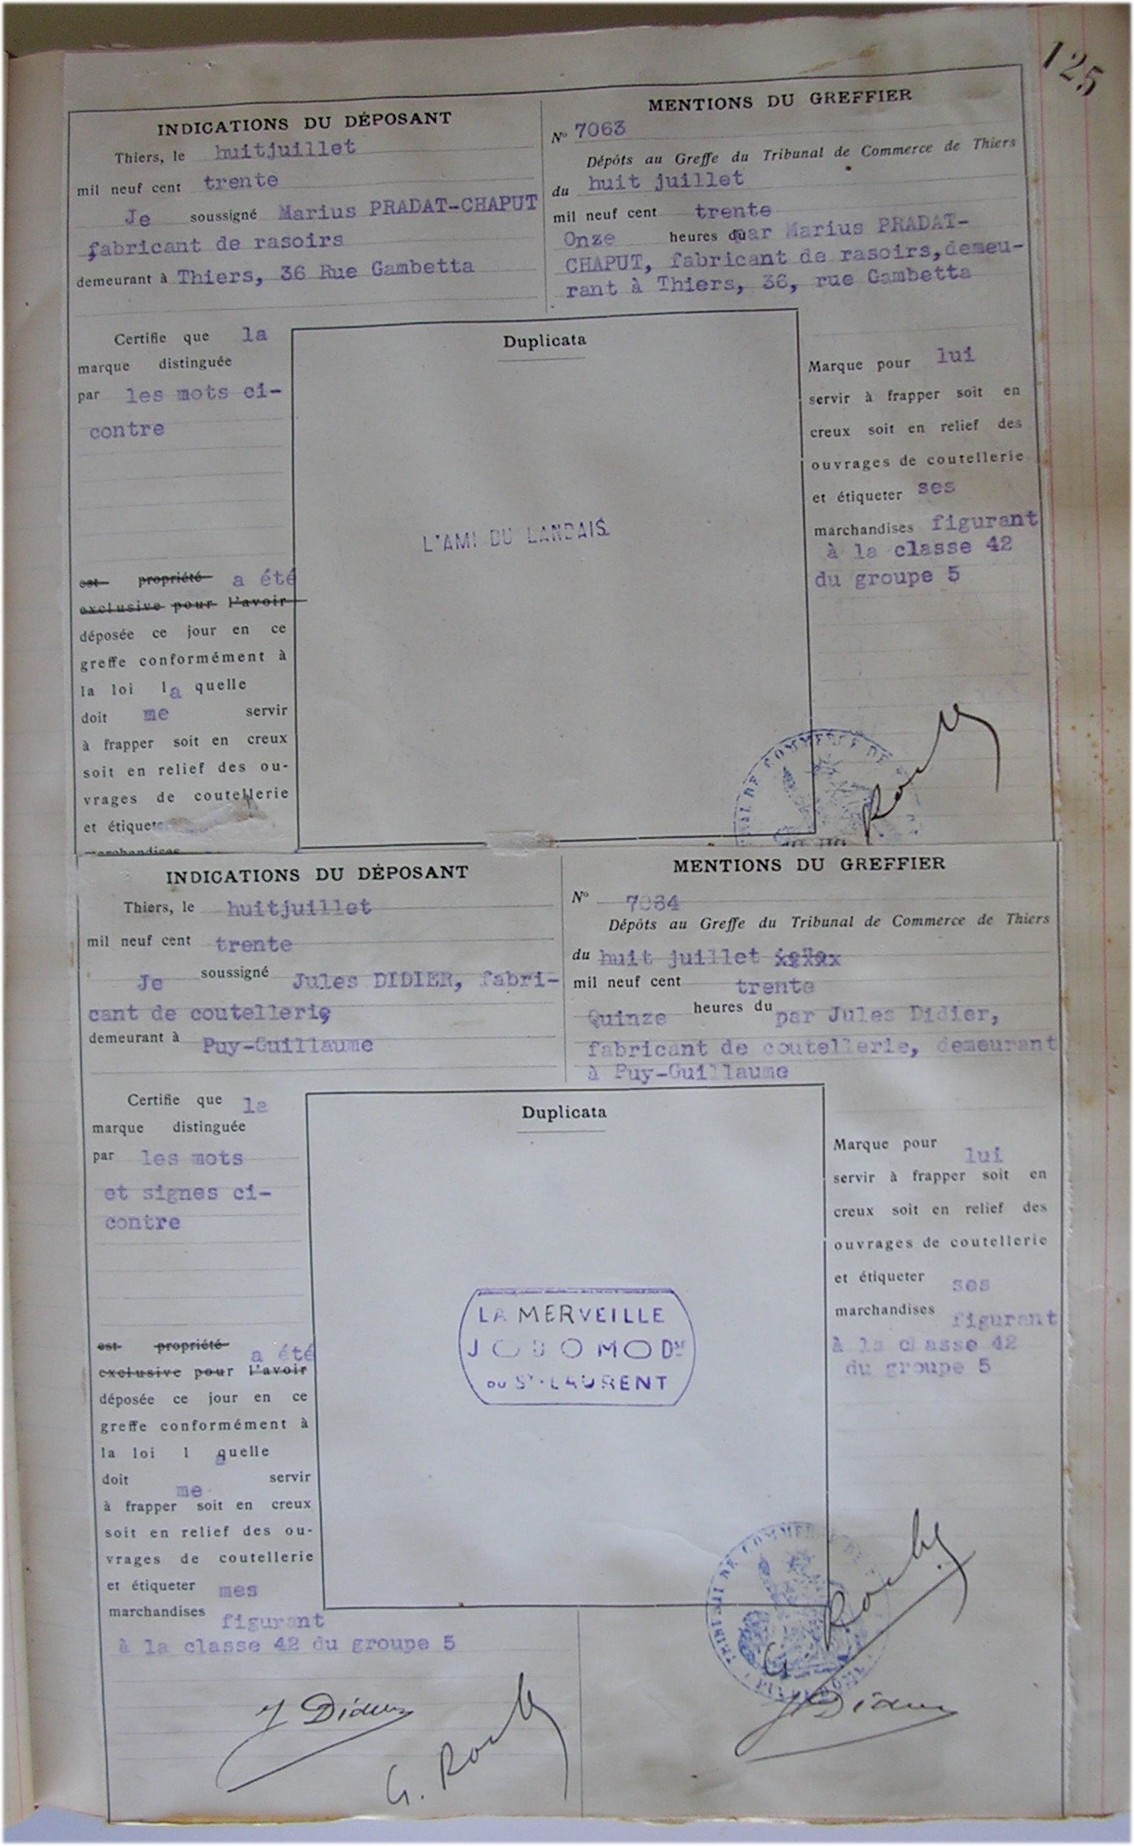 125
INDICATIONS DU DÉPOSANT
Thiers, le huitjuillet
mil neuf cent trente
Je soussigné Marius PRADAT-CHAPUT
fabricant de rasoirs
demeurant à Thiers, 36 Rue Gambetta
MENTIONS DU GREFFIER
N° 7063
Dépôts au Greffe du Tribunal de Commerce de Thiers
du huit juillet
mil neuf cent trente
Onze heures du par Marius PRADAT-
CHAPUT, fabricant de rasoirs, demeu-
rant à Thiers, 36, rue Gambetta
Certifie que la
marque distinguée
par les mots ci-
contre
est propriété a été
exclusive pour l'avoir
déposée ce jour en ce
greffe conformément à
la loi la quelle
doit me servir
à frapper soit en creux
soit en relief des ou-
vrages de coutellerie
et étiqueter
marchandises
Duplicata
L'AMI DU LANDAIS
Marque pour lui
servir à frapper soit en
creux soit en relief des
ouvrages de coutellerie
et étiqueter ses
marchandises figurant
à la classe 42
du groupe 5
INDICATIONS DU DÉPOSANT
Thiers, le huitjuillet
mil neuf cent trente
Je soussigné Jules DIDIER, fabri-
cant de coutellerie
demeurant à Puy-Guillaume
MENTIONS DU GREFFIER
N° 7064
Dépôts au Greffe du Tribunal de Commerce de Thiers
du huit juillet
mil neuf cent trente
Quinze heures du par Jules Didier,
fabricant de coutellerie, demeurant
à Puy-Guillaume
Certifie que la
marque distinguée
par les mots
et signes ci-
contre
est propriété a été
exclusive pour l'avoir
déposée ce jour en ce
greffe conformément à
la loi l aquelle
doit me servir
à frapper soit en creux
soit en relief des ou-
vrages de coutellerie
et étiqueter mes
marchandises figurant
à la classe 42 du groupe 5
Duplicata
LA MERVEILLE
JOUOMO Dse
DU St-LAURENT
Marque pour lui
servir à frapper soit en
creux soit en relief des
ouvrages de coutellerie
et étiqueter ses
marchandises figurant
à la classe 42
du groupe 5
J Didier
J Didier